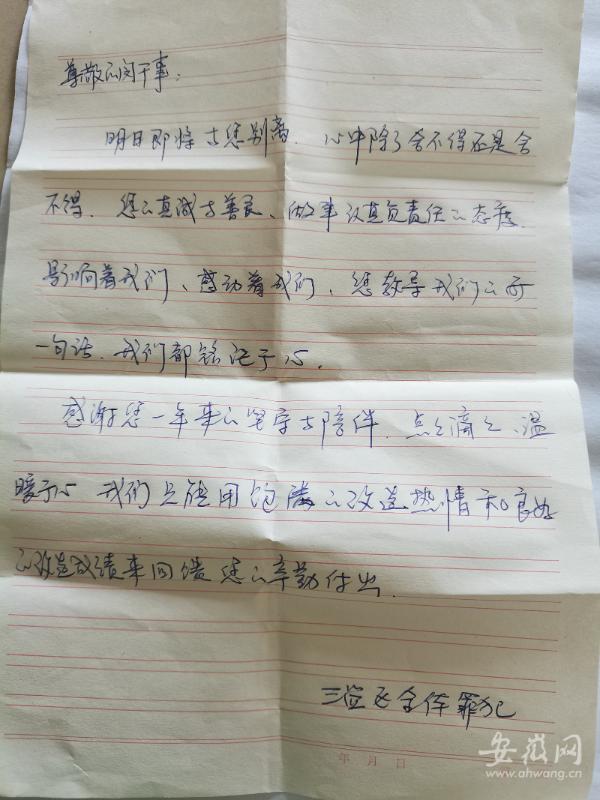 尊敬的闵干事：
明日即将与您别离，心中除了舍不得还是舍
不得，您的真诚与善良、做事认真负责任的态度，
影响着我们、感动着我们、您教导我们的每
一句话，我们都铭记于心。
感谢您一年来的坚守与陪伴，点点滴滴、温
暖于心 我们只能用饱满的改造热情和良好
的改造成绩来回馈您的辛勤付出。
三监区全体罪犯
年 月 日
安徽网
www.ahwang.cn